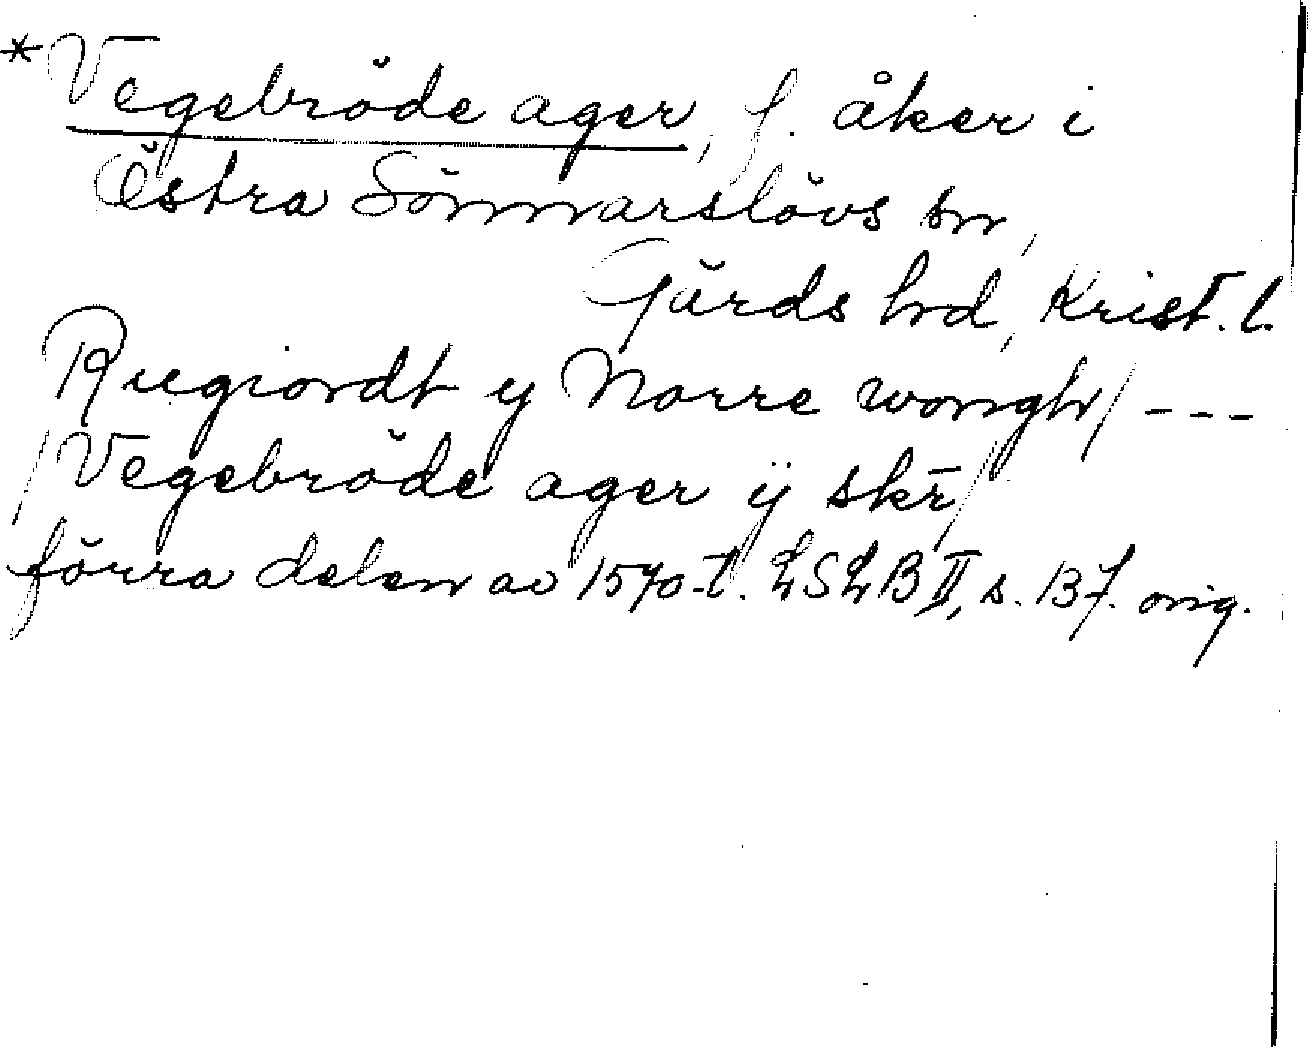 *Vegebröde ager, f. åker i
Östra Sönnarslövs sn,
Gärds hd, Krist. l.
Rugiordt y Norre wongh/ ---
/Vegebröde ager ÿ skr̄/
förra delen av 1570-t. LSLB II, s. 137. orig.